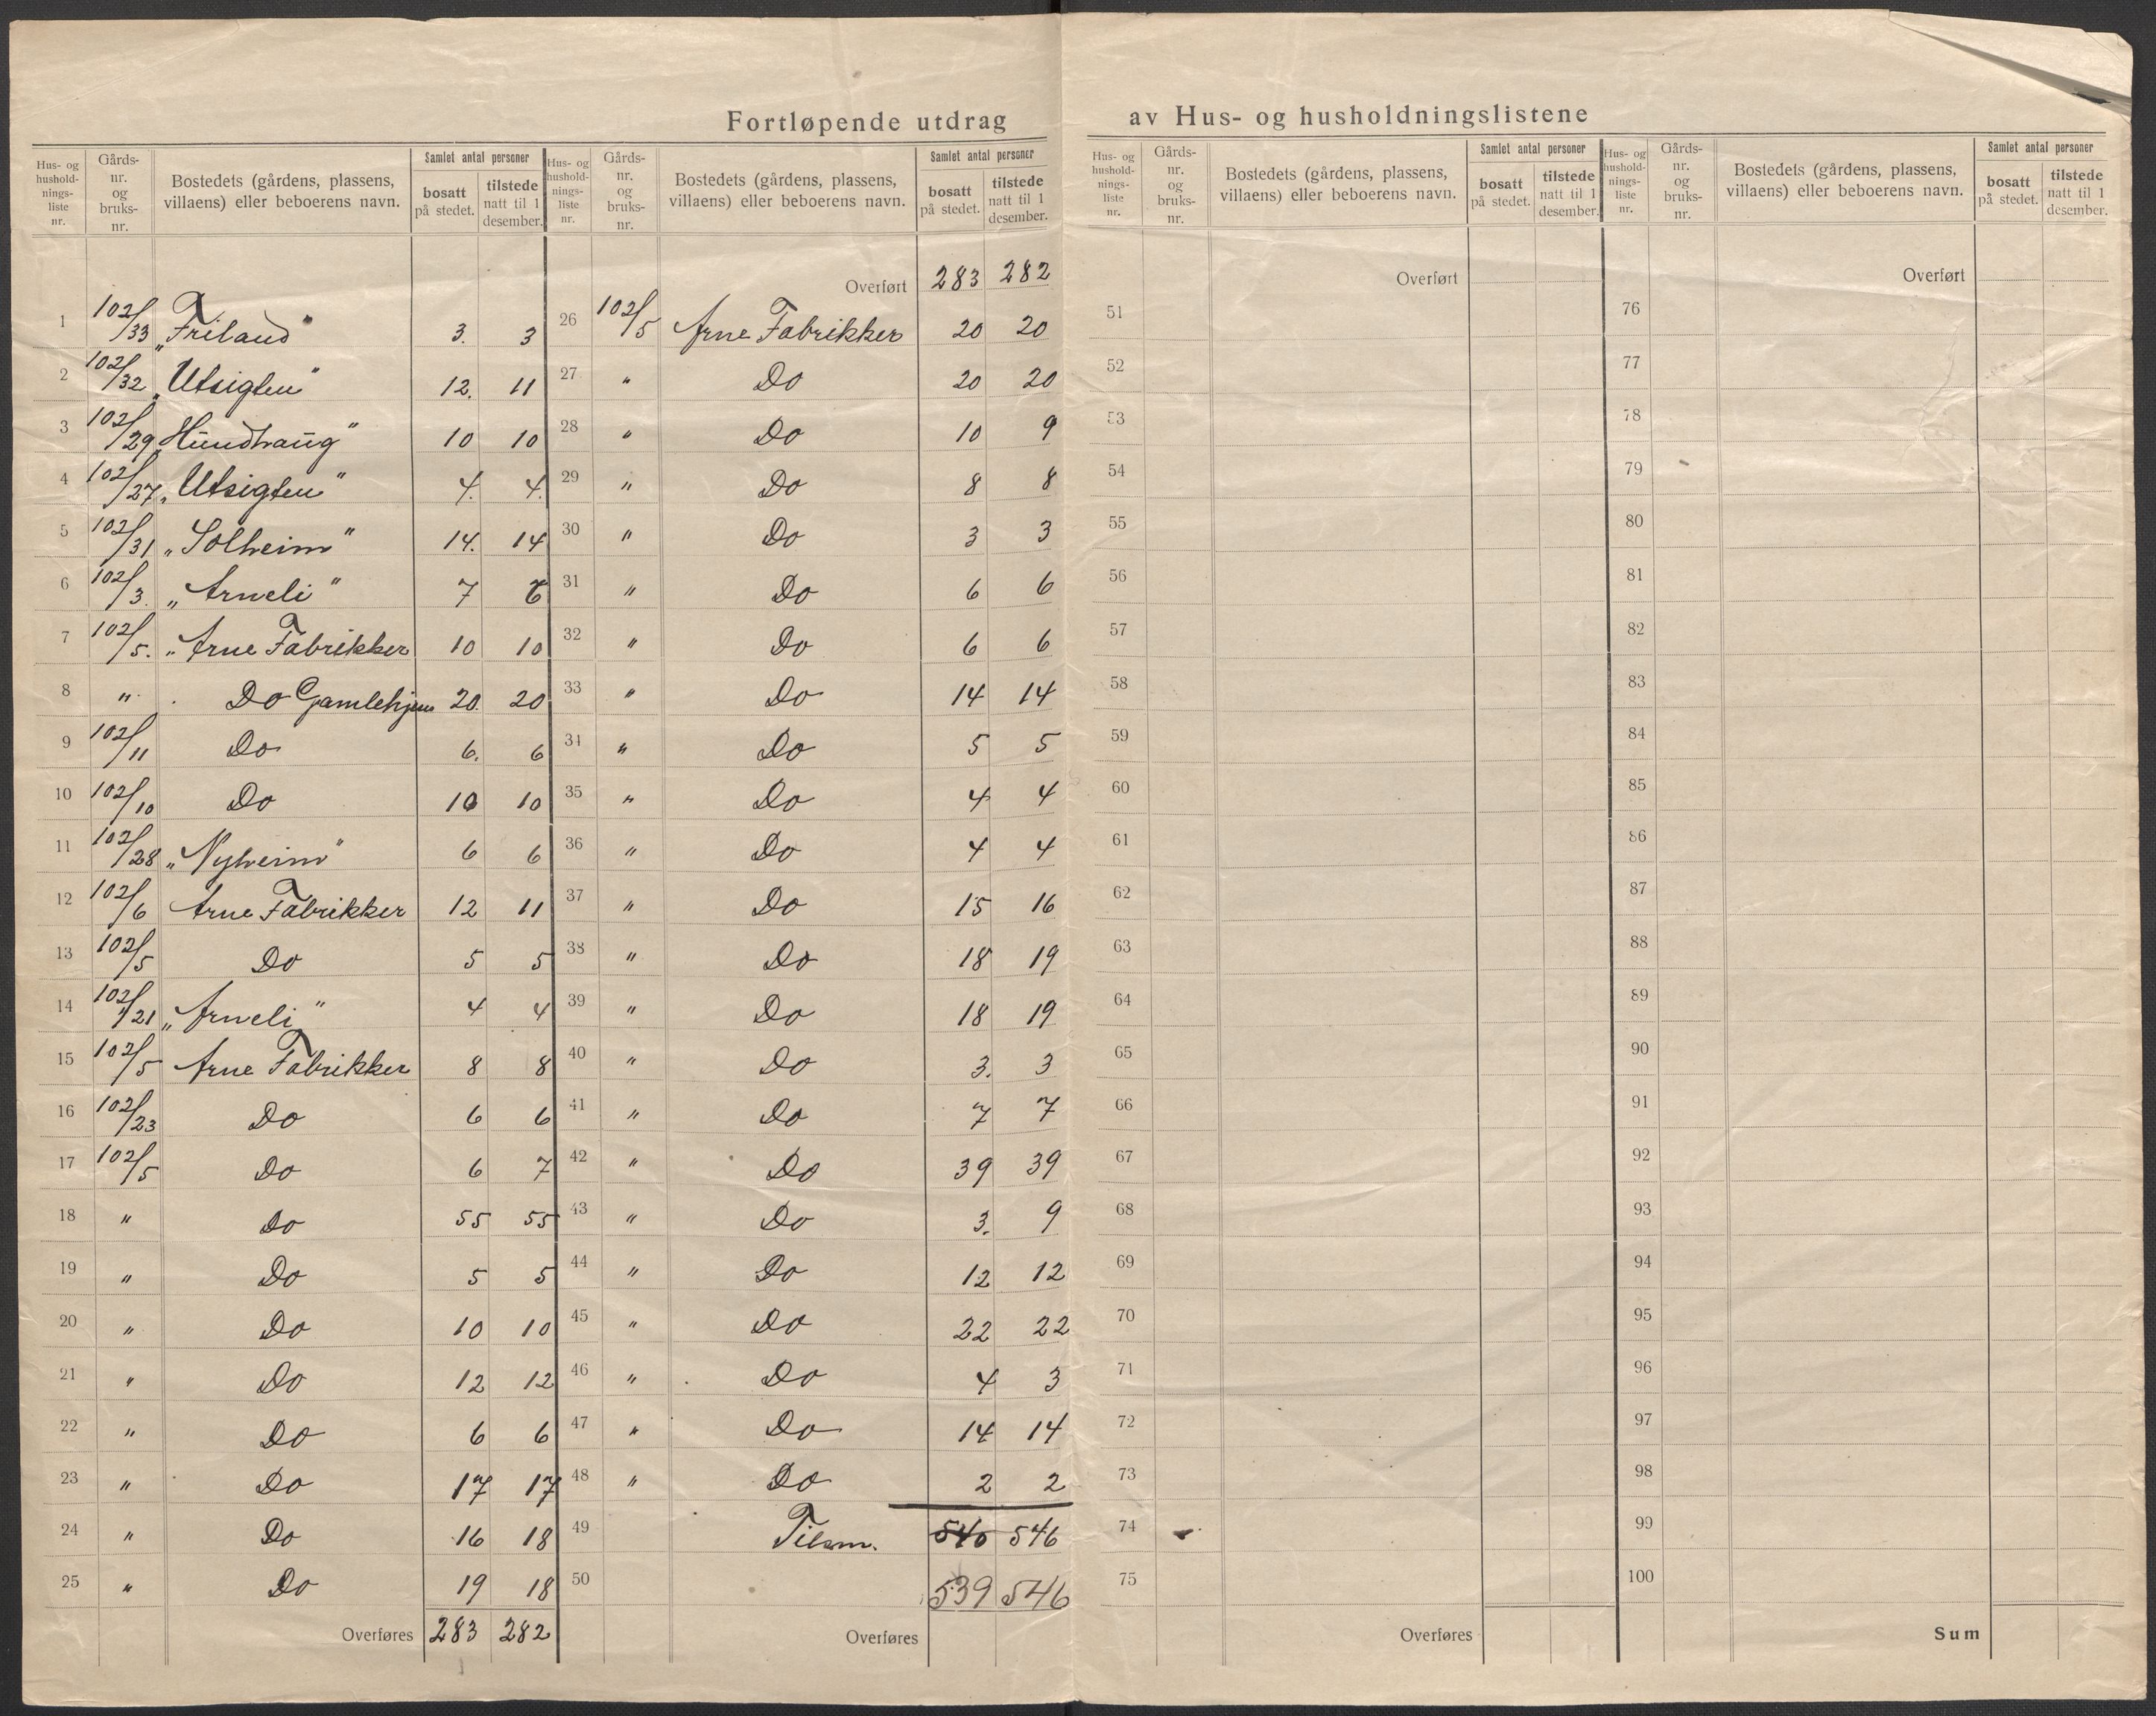 Fortløpende utdrag av Hus- og husholdningslistene
Hus- og husholdnings-liste nr. | Gårds-nr. og bruks-nr. | Bostedets (gårdens, plassens, villaens) eller beboerens navn. | Samlet antal personer | bosatt på stedet. | tilstede natt til 1 desember.
1 102/33 „Friland" 3. 3
2 102/32 „Utsigten" 12. 11
3 102/29 „Hundhaug" 10 10
4 102/27 „Utsigten" 4. 4.
5 102/31 „Solheim" 14. 14
6 102/3. „Arneli" 7 6
7 102/5. „Arne Fabrikker 10 10
8 " Do Gamlehjem 20. 20
9 102/11 Do 6. 6
10 102/10 Do 10 10
11 102/28 „Nyheim" 6 6
12 102/6 Arne Fabrikker 12 11
13 102/5 Do 5 5
14 102/21 „Arneli" 4 4
15 102/5 Arne Fabrikker 8 8
16 102/23 Do 6 6
17 102/5 Do 6 7
18 " Do 55 55
19 " Do 5 5
20 " Do 10 10
21 " Do 12 12
22 " Do 6 6
23 " Do 17 17
24 " Do 16 18
25 " Do 19 18
Overføres 283 282
Hus- og husholdnings-liste nr. | Gårds-nr. og bruks-nr. | Bostedets (gårdens, plassens, villaens) eller beboerens navn. | Samlet antal personer | bosatt på stedet. | tilstede natt til 1 desember.
Overført 283 282
26 102/5 Arne Fabrikker 20 20
27 " Do 20 20
28 " Do 10 9
29 " Do 8 8
30 " Do 3 3
31 " Do 6 6
32 " Do 6 6
33 " Do 14 14
34 " Do 5 5
35 " Do 4 4
36 " Do 4 4
37 " Do 15 16
38 " Do 18 19
39 " Do 18 19
40 " Do 3. 3
41 " Do 7 7
42 " Do 39 39
43 " Do 3. 9
44 " Do 12 12
45 " Do 22 22
46 " Do 4 3
47 " Do 14 14
48 " Do 2 2
49 Tilsm. 540 546
50 539 546
Overføres
Hus- og husholdnings-liste nr. | Gårds-nr. og bruks-nr. | Bostedets (gårdens, plassens, villaens) eller beboerens navn. | Samlet antal personer | bosatt på stedet. | tilstede natt til 1 desember.
Overført
51
52
53
54
55
56
57
58
59
60
61
62
63
64
65
66
67
68
69
70
71
72
73
74
75
Overføres
Hus- og husholdnings-liste nr. | Gårds-nr. og bruks-nr. | Bostedets (gårdens, plassens, villaens) eller beboerens navn. | Samlet antal personer | bosatt på stedet. | tilstede natt til 1 desember.
Overført
76
77
78
79
80
81
82
83
84
85
86
87
88
89
90
91
92
93
94
95
96
97
98
99
100
Sum